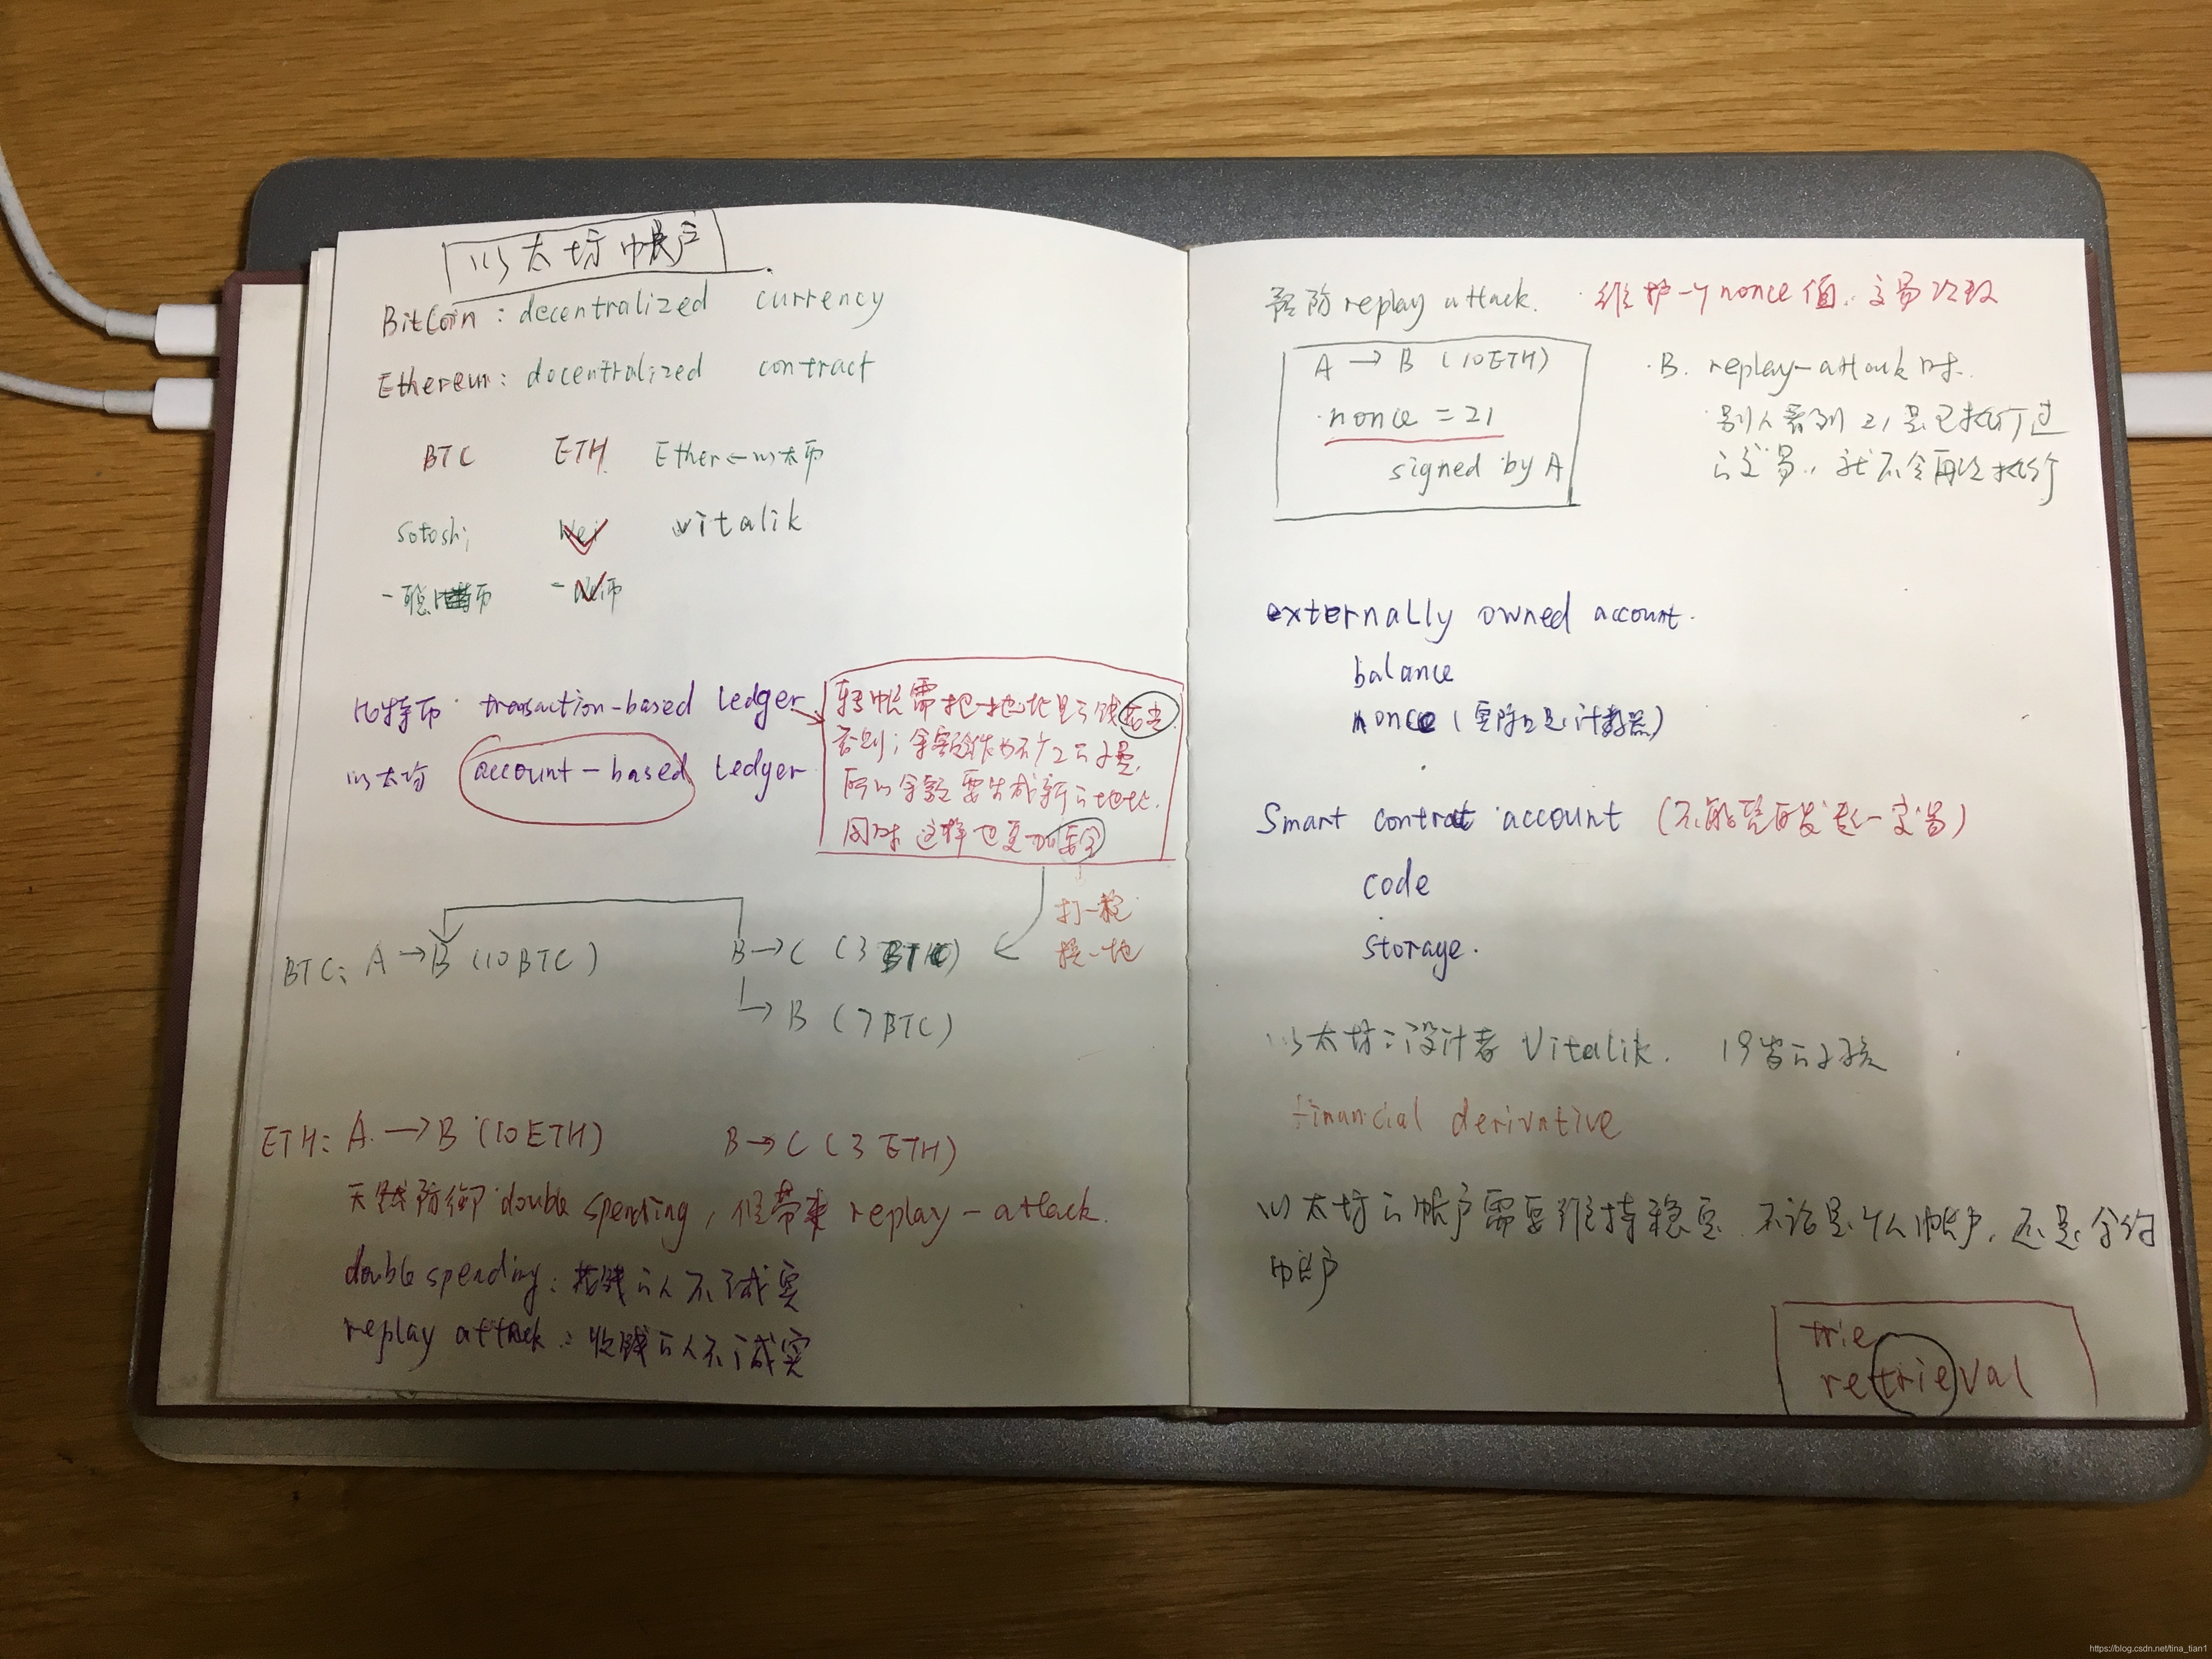 以太坊帐户
BitCoin : decentralized currency
Ethereum : docentralized contract
BTC ETH Ether ← 以太币
Sotoshi Wei vitalik
一聪 币
比特币 transaction-based Ledger
以太坊 account-based Ledger
转帐需把一地址的钱花出
否则;余额作为不
所以余额要生成新的地址.
同时 这样也更加安全
打一枪
换一地
BTC: A → B (10 BTC) B → C (3 BTC)
→ B (7 BTC)
ETH: A. → B (10 ETH) B → C (3 ETH)
天然防御 double spending, 但带来 replay-attack.
double spending: 花钱的人不诚实
replay attack: 收钱的人不诚实
预防 replay attack. 维护一个nonce值. 交易次数
A → B (10 ETH)
nonce = 21
signed by A
B. replay-attack 时.
别人看到 21 是已执行过
的交易, 就不会再次执行
externally owned account.
balance
nonce (实际上是计数器)
Smart contract account (不能随意发起一交易)
code
storage.
以太坊的设计者 Vitalik. 19岁的小孩
financial derivative
以太坊的帐户需要维持稳定 不论是个人帐户, 还是合约
帐户
trie
retrieval
https://blog.csdn.net/tina_tian1